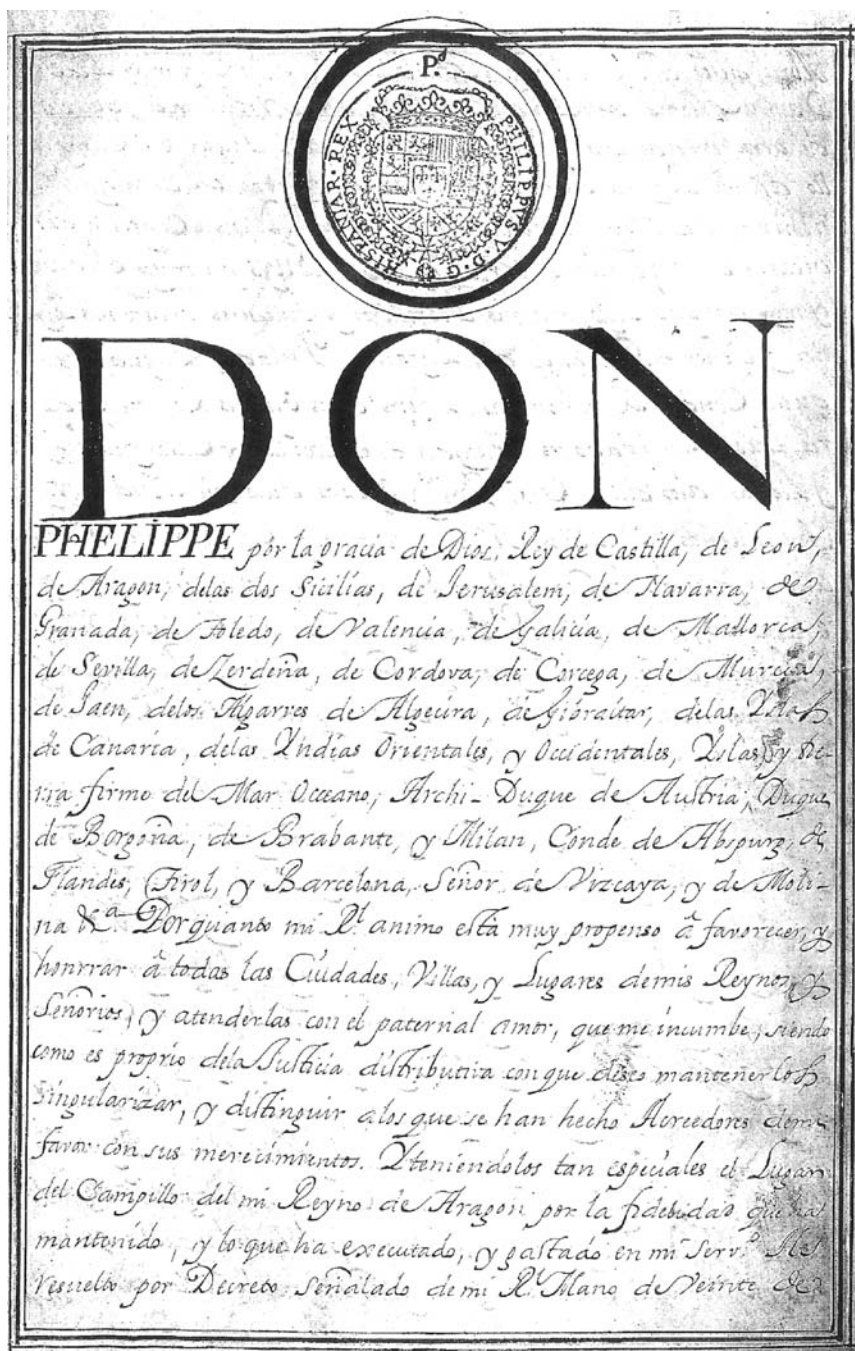 P.d
PHILIPPVS V D. G HISPANIAR. REX
DON
PHELIPPE por la gracia de Dios. Rey de Castilla, de Leon,
de Aragon, delas dos Sicilias, de Ierusalem, de Navarra, de
Granada, de Toledo, de Valencia, de Galicia, de Mallorca,
de Sevilla, de Zerdeña, de Cordova, de Corcega, de Murcia,
de Jaen, delos Algarves de Algecira, de Gibraltar, delas Yslas
de Canaria, delas Yndias Orientales, y Occidentales, Yslas, y tie-
rra firme del Mar Occeano, Archi-Duque de Austria, Duque
de Borgoña, de Brabante, y Milan, Conde de Abspurg, de
Flandes, Tirol, y Barcelona, Señor de Vizcaya, y de Moli-
na &.a Por quanto mi R.l animo està muy propenso â favorecer, y
honrrar â todas las Ciudades, Villas, y Lugares demis Reynos, y
Señorios, y atenderlas con el paternal amor, que me incumbe, siendo
como es proprio dela Justicia distributiva con que deseo mantenerlos
singularizar, y distinguir alos que se han hecho Acreedores demi
favor con sus merecimientos. Y teniendolos tan especiales el Lugar
del Campillo del mi Reyno de Aragon por la fidelidad que ha
mantenido, y lo que ha executado, y gastado en mi serv.o He
resuelto por Decreto señalado de mi R.l Mano de Veinte de